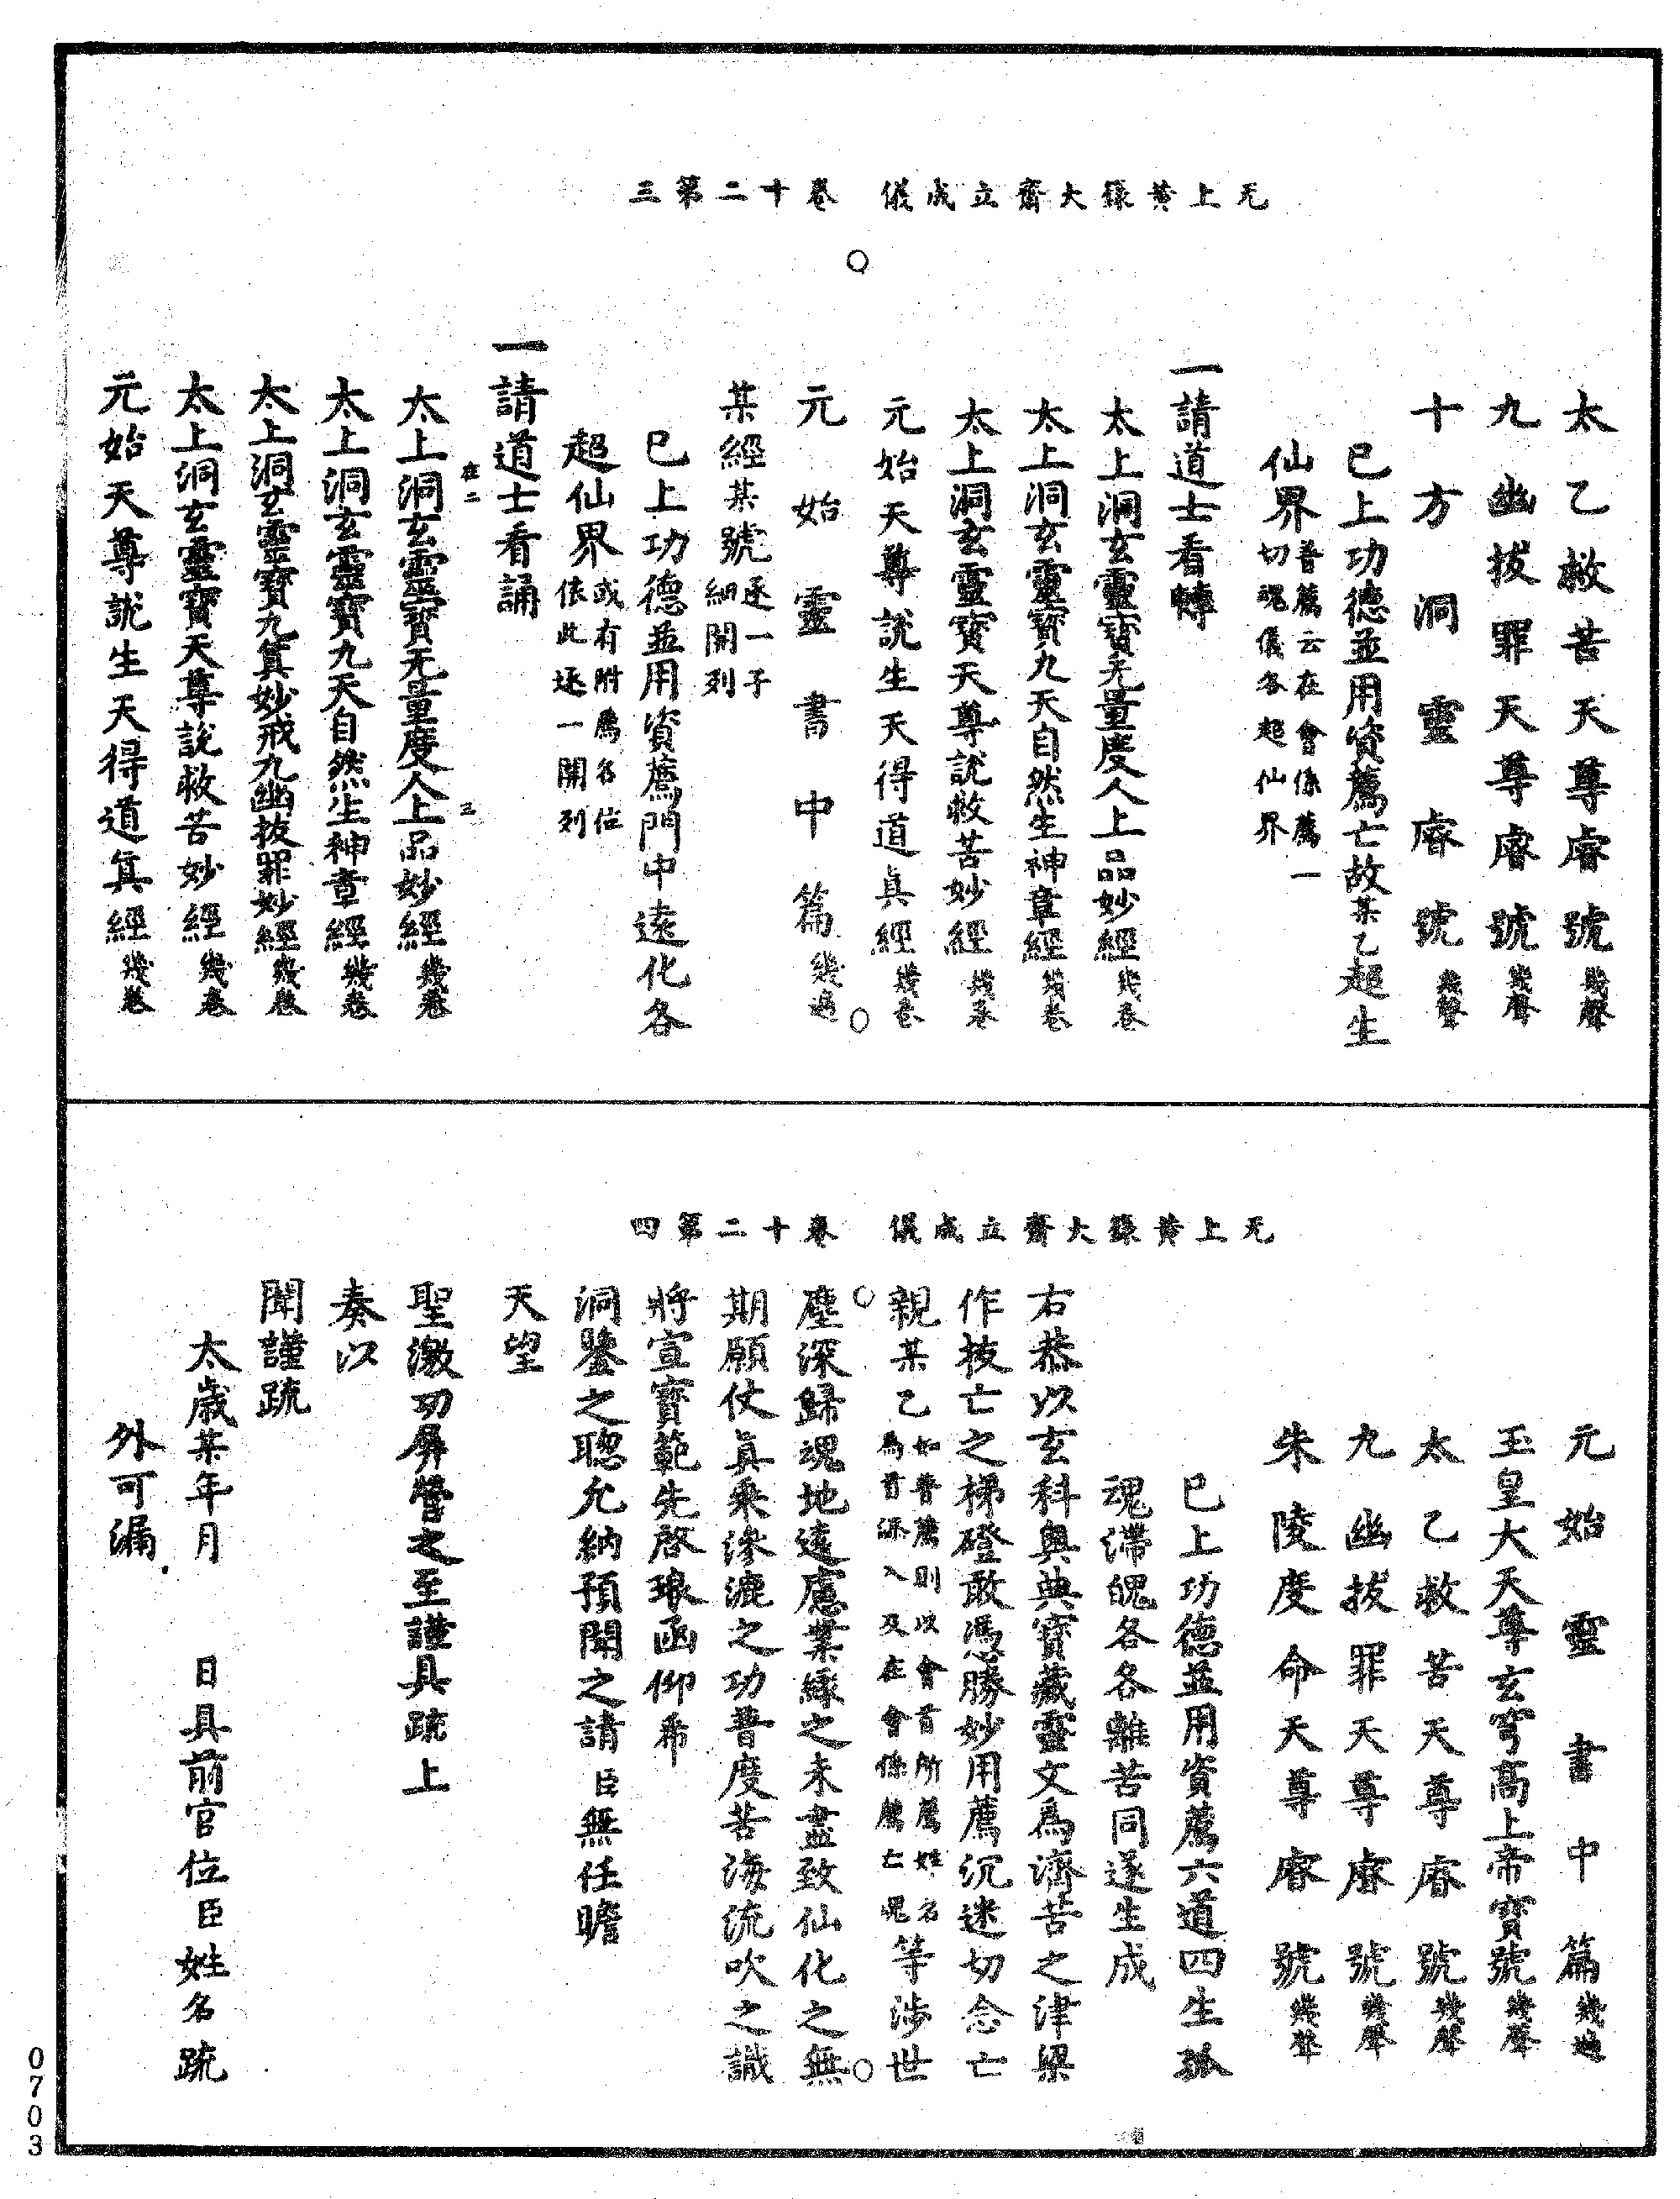 无上黃籙大齋立成儀　卷二十第三
太乙救苦天尊睿號幾聲
九幽拔罪天尊睿號幾聲
十方洞靈睿號幾聲
已上功德並用資薦亡故某乙超生
仙界普薦云在會係薦一切魂儀各超仙界
一請道士看轉
太上洞玄靈寶无量度人上品妙經幾卷
太上洞玄靈寶九天自然生神章經幾卷
太上洞玄靈寶天尊說救苦妙經幾卷
元始天尊說生天得道眞經幾卷
元始靈書中篇幾遍
某經某號逐一子細開列
已上功德並用資薦門中遠化各
超仙界或有附薦名位依此逐一開列
一請道士看誦
在二　三
太上洞玄靈寶无量度人上品妙經幾卷
太上洞玄靈寶九天自然生神章經幾卷
太上洞玄靈寶九眞妙戒九幽拔罪妙經幾卷
太上洞玄靈寶天尊說救苦妙經幾卷
元始天尊說生天得道眞經幾卷
无上黃籙大齋立成儀　卷二十第四
元始靈書中篇幾遍
玉皇大天尊玄穹高上帝寶號幾聲
太乙救苦天尊睿號幾聲
九幽拔罪天尊睿號幾聲
朱陵度命天尊睿號幾聲
已上功德並用資薦六道四生孤
魂滯魄各各離苦同遂生成
右恭以玄科奧典寶藏靈文爲濟苦之津梁
作拔亡之梯磴敢憑勝妙用薦沉迷切念亡
親某乙如普薦則以會首所薦姓名爲首添入及在會係薦亡魂等涉世
塵深歸魂地遠應業緣之未盡致仙化之無
期願仗眞乘滲漉之功普度苦海流吹之識
將宣寶範先啓琅函仰希
洞鑒之聰允納預聞之請臣無任瞻
天望
聖激切屏營之至謹具疏上
奏以
聞謹疏
太歲某年月　日具前官位臣姓名疏
外可漏
0703